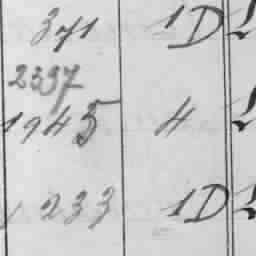 371 1D
2337
1945 4
233 1D